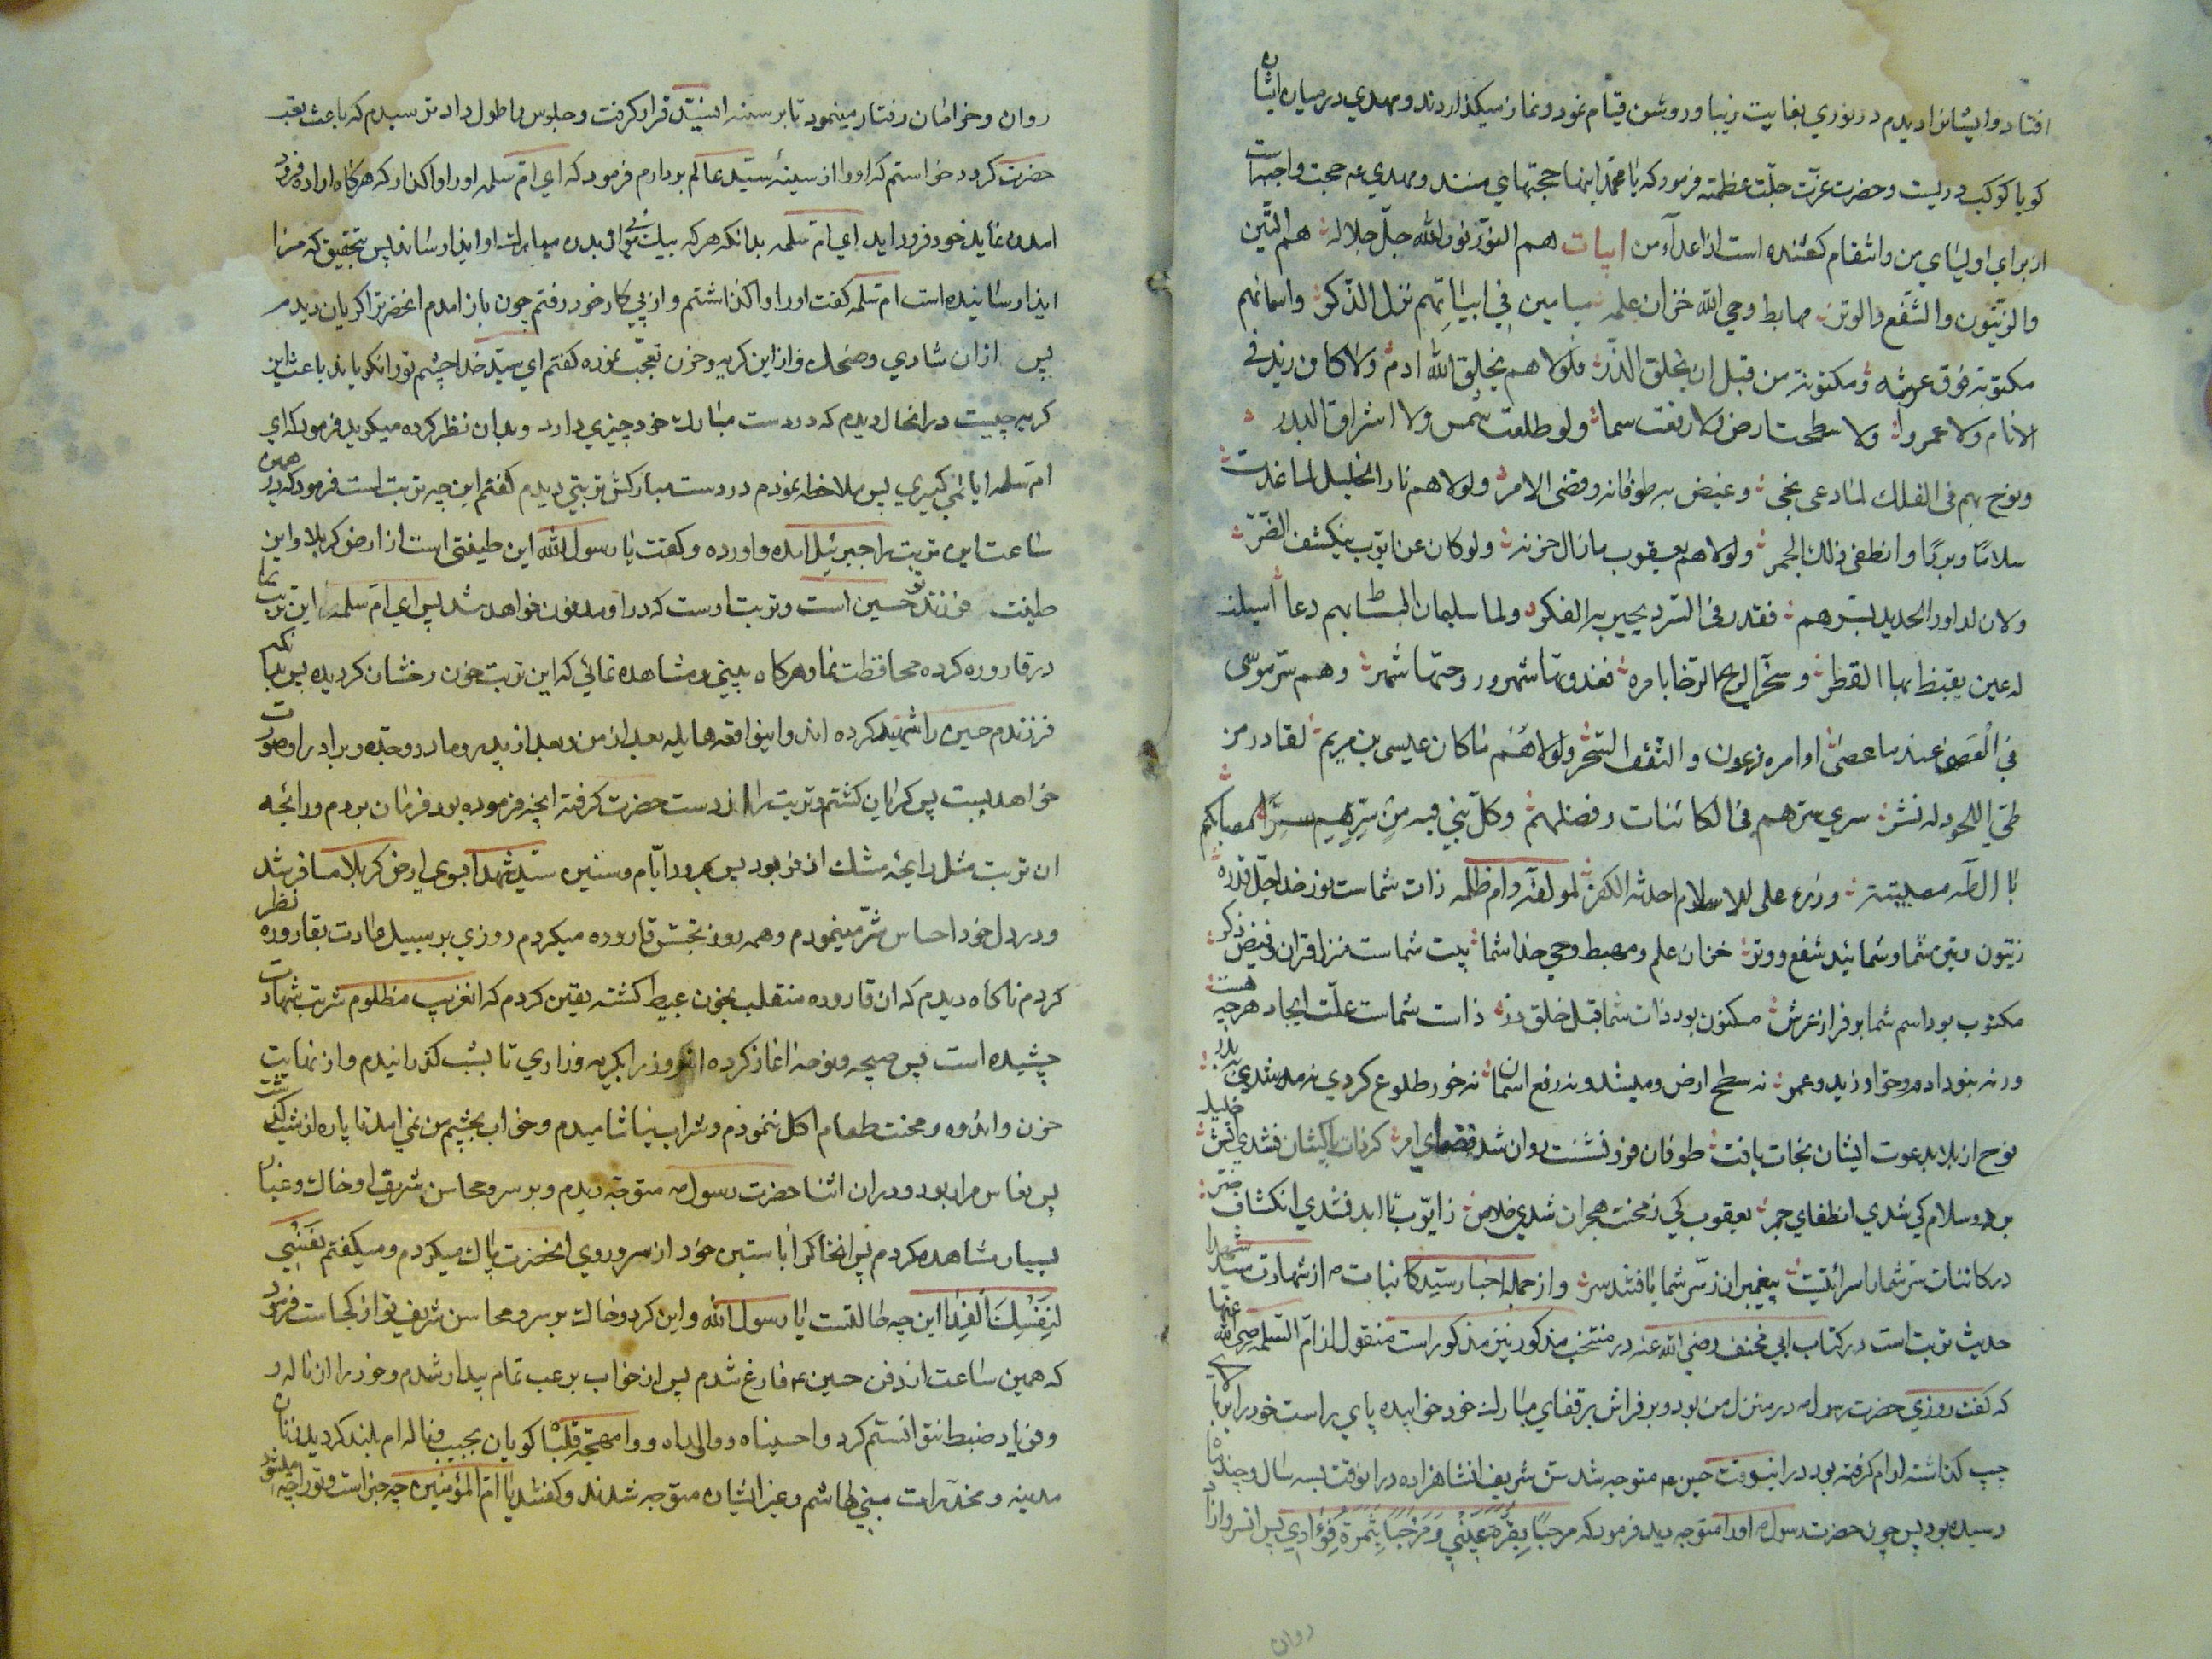 افتاد و ایشانرا دیدم در نوری بغایت زیبا و روشن قیام نمود و نماز میگذاردند و مهدی در میان ایشان
گویا کوکب دریست و حضرت عزّت جلّت عظمته فرمود که یا محمّد اینها حجتهای منند و مهدی عه حجت واجبست
از برای اولیای من و انتقام کشنده است از اعدآء من ابیات هم النور نور الله جلّ جلاله هم التّین
والزیتون والشّفع والوتر مهابط وحی الله خزان علمه میامین فی ابیاتهم نزل الذّکر واسمائهم
مکتوبة فوق عرشه ومکنونة من قبل ان یخلق الذّر فلولا هم یخلق الله ادم ولا کان زید فی
الانام ولا عمرو ولا سطحت ارض ولا رفعت سما ولو طلعت شمس ولا اشراق البدر
ونوح بهم فی الفلک لما دعی نجی وغیض به طوفانه وقضی الامر ولولا هم نار الخلیل لما غدت
سلامًا وبردًا وانطفی ذلک الجمر ولولا هم یعقوب مازال حزنه ولو کان عن ایّوب ینکشف الضّرّ
ولان لداود الحدید بسرهم فقدر فی السّرد یحیر به الفکر ولما سلیمان البساط بهم دعا اسیلت
له عین یفیض بها القطر وسخّر الریح الرّخا بامره فغدوتها شهر وروحتها شهر وهم سرّ موسی
فی العصی عندما عصی اوامره فرعون والتقف السّحر ولولاهم ماکان عیسی بن مریم لقادر من
طیّ اللحود له نشر سری سرّهم فی الکائنات وفضلهم وکلّ نبی فیه من سرّهم سرّ لمصابکم
یا ال طه مصیبته ورزء علی الاسلام احدثه الکفر لمولفه دام ظلّه ذات شماست نور خدا جلّ قدره
زیتون وتین شما و شمائید شفع و وتر خزان علم و مهبط وحی خدا شما بیت شماست منزل قران و فیض ذکر
مکتوب بود اسم شما بر فراز عرش مکنون بود ذات شما قبل خلق ذر ذات شماست علّت ایجاد هرچه هست
ورنه بنود ادم و حوا و زید و عمر نه سطح ارض و میشد و نه رفع اسمان نه خور طلوع کردی نه مدشدی بدر
نوح از بلا بدعوت ایشان نجات یافت طوفان فرو نشست روان شد قضای امر گرنات پاکشان نشدی خلیل
برد و سلام کی شدی انطفای جمر یعقوب کی ز محنت هجران شدی خلاص ز ایّوب تا ابد نشدی انکشاف ضرّ
در کائنات سرّ شما را سرائتیست پیغمبران ز سرّ شما یافتند سر و از جمله اخبار سیّد کاینات ص از شهادت سیّد شهدا
حدیث تربت است در کتاب ابی مخنف رضی الله عنه در منتخب مذکور نیز مذکور است منقول از امّ السلمه رضی الله عنها
که گفت روزی حضرت رسول ص در منزل من بود و بر فراش بر قفای مبارک خود خوابیده پای راست خود را بر بالای
چپ گذاشته ارام گرفته بود در انوقت حسین عه متوجه شد سنّ شریف انشاهزاده در انوقت بسه سال و چند ماه
رسیده بود پس چون حضرت رسول ص او را متوجه دید فرمود که مرحبًا بِقُرّةِ عَینی وَ مَرْحَبًا بِثَمَرَةِ فُؤادی پس انسرو ازاد
روان
روان و خرامان رفتار مینمود تا بر سینه انسیّد قرار گرفت و جلوس را طول داد ترسیدم که باعث تعب
حضرت گردد خواستم که او را از سینهٔ سیّد عالم بردارم فرمود که ای امّ سلمه او را واگذار که هرگاه اراده فرود
امدن نماید خود فرود اید ای امّ سلمه بدانکه هرکه بیک موی بدن مبارک او ایذا رساند پس بتحقیق که مرا
ایذا رسانیده است امّ سلمه گفت او را واگذاشتم و از پی کار خود رفتم چون باز امدم انحضرت را گریان دیدم
پس ازان شادی و ضحک و از این گریه و حزن تعجّب نموده گفتم ای سیّد خدا چشم تو را نگریاند باعث این
گریه چیست در انحال دیدم که در دست مبارک خود چیزی دارد و بدان نظر کرده میگرید فرمود که ای
امّ سلمه ایا نمی‌گیری پس ملاحظه نمودم در دست مبارکش تربتی دیدم گفتم این چه تربت است فرمود که در همین
ساعت این تربت را جبرئیل امده و اورده و گفت یا رسول الله این طینتی است از ارض کربلا و این
طینت فرزند تو حسین است و تربت اوست که در او مدفون خواهد شد پس ای امّ سلمه این تربت را
در قاروره کرده محافظت نما و هرگاه ببینی و مشاهده نمائی که این تربت خون رخشان گردیده پس بدانکه
فرزندم حسین را شهید کرده اند و اینواقعه هایله بعد از من و بعد از پدر و مادر و جدّه و برادر او صورت
خواهد بست پس گریان گشتم و تربت را از دست حضرت گرفته انچه فرموده بود فرمان بردم و رائحه
ان تربت مثل رایحه مشک اذفر بود پس بمرور ایّام و سنین سیّد شهدا بسوی ارض کربلا مسافر شد
و در دل خود احساس شرّ مینمودم و همه روز تجسّس قاروره میکردم روزی بر سبیل عادت بقاروره نظر
کردم ناگاه دیدم که ان قاروره منقلب بخون عبیط گشته یقین کردم که انغریب مظلوم شربت شهادت
چشیده است پس صیحه و نوحه اغاز کرده انروز را بگریه و زاری تا بشب گذرانیدم و از نهایت
حزن و اندوه و محنت طعام اکل ننمودم و شراب نیاشامیدم و خواب بچشم من نمی امد تا پاره از شب گذشت
پس نعاس مرا ربود و در ان اثنا حضرت رسول ص متوجه دیدم و بر سر و محاسن شریف او خاک و غبار
بسیار مشاهده کردم پس انخاک را باستین خود از سر و روی انحضرت پاک میکردم و میگفتم نَفْسی
لِنَفْسِکَ الفِدا این چه حالتست یا رسول الله و این گرد و خاک بر سر و محاسن شریف تو از کجاست فرمود
که همین ساعت از دفن حسین ع فارغ شدم پس از خواب برعب تمام بیدار شدم و خود را از ناله و
و فریاد ضبط نتوانستم کرد واحسیناه و واولداه و وا مهجة قلباه گویان بنحیب و ناله ام بلند گردید زنان
مدینه و مخدّرات بنی هاشم و غیر ایشان متوجه شدند و گفتند یا امّ المؤمنین چه خبر است و تو را چه میشود